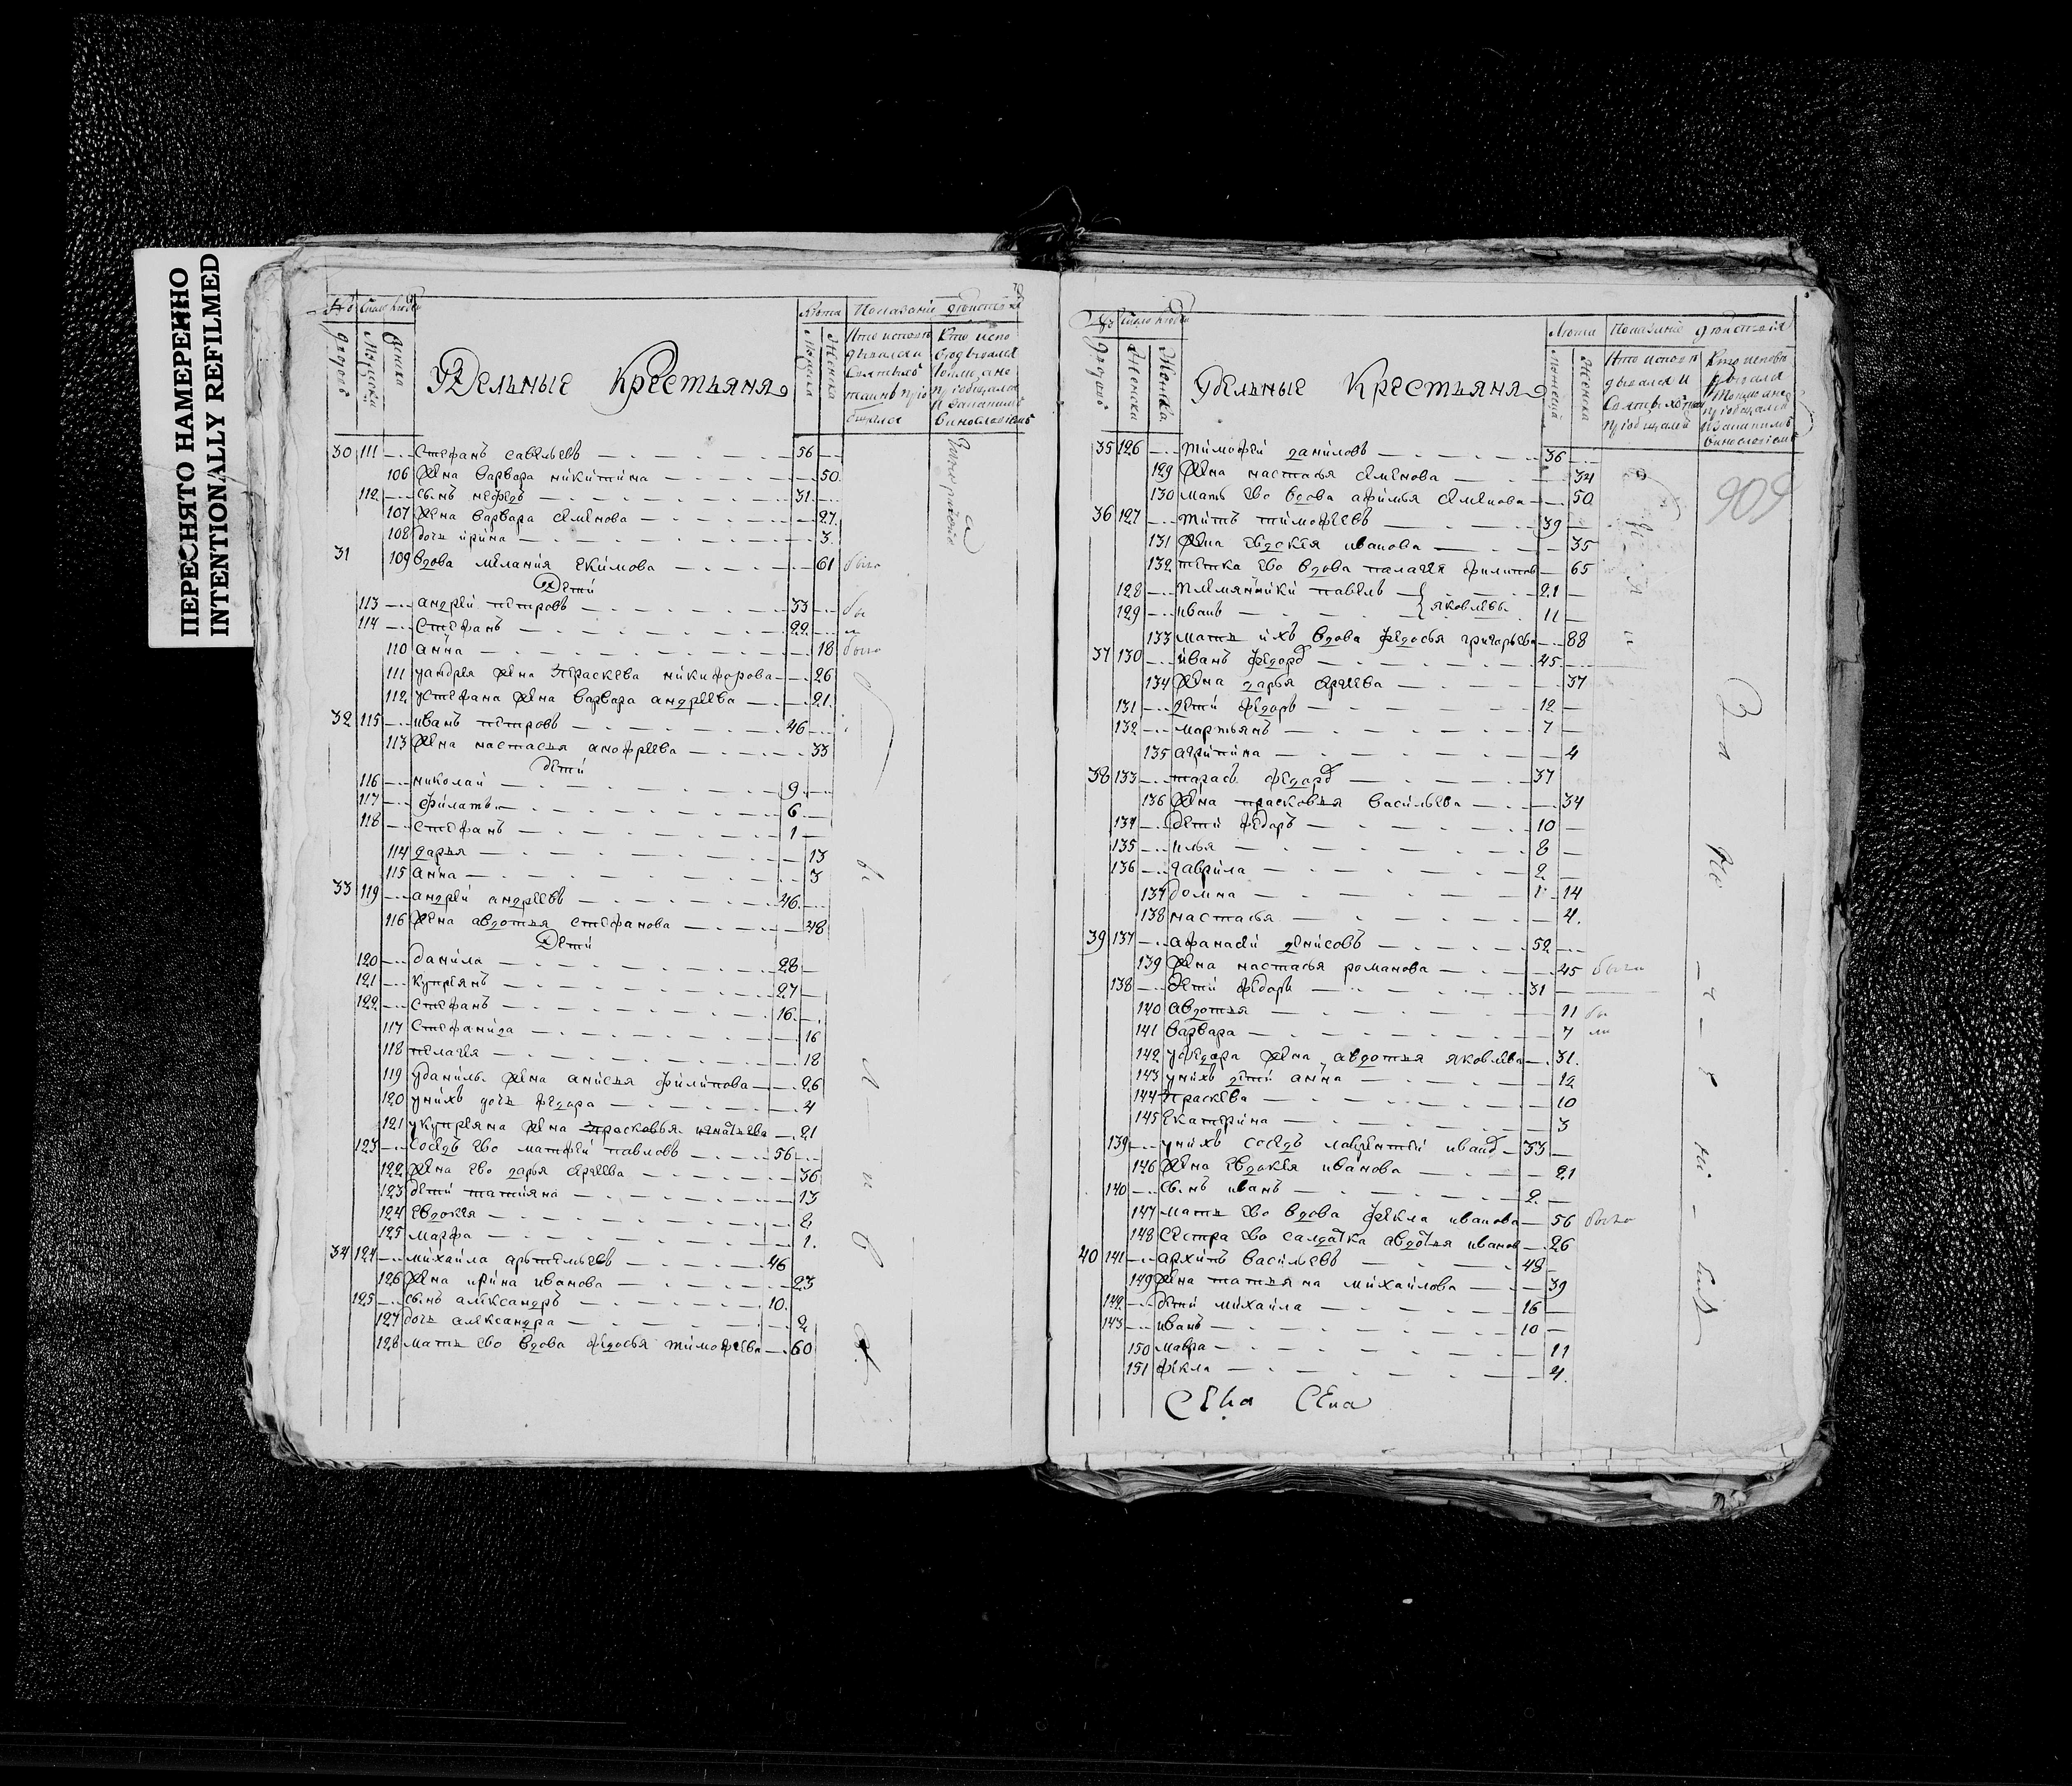 ПЕРЕСНЯТО НАМЕРЕННО
INTENTIONALLY REFILMED
Удельные Крестьяня
30 111 Стефанъ савельевъ 56
106 жена варвара никитина 50
112 сынъ нефедъ 31
107 жена варвара семенова 27
108 дочь ирина 3
31 109 вдова мелания екимова 61
Дети
113 андрей петровъ 33
114 Стефанъ 22
110 анна 18
111 уандрея жена Праскева никифорова 26
112 устефана жена варвара андреева 21
32 115 иванъ петровъ 46
113 жена настасья анофреева 33
дети
116 николай 9
117 филатъ 6
118 стефанъ 1
114 дарья 13
115 анна 3
33 119 андрей андреевъ 46
116 жена авдотья стефанова 48
Дети
120 данила 28
121 купреянъ 27
122 стефанъ 16
117 Стефанида 16
118 пелагея 18
119 уданилы жена анисья филипова 26
120 унихъ дочь федора 4
121 укупреяна жена прасковья игнатьева 21
123 соседъ ево матфей павловъ 56
122 жена ево дарья сергеева 36
123 дети татияна 13
124 евдокея 2
125 марфа 1
34 124 михайла арьтемьевъ 46
126 жена ирина иванова 23
125 сынъ александръ 10
127 дочь александра 2
128 мать ево вдова федосья тимофеева 60
Удельные Крестьяня
35 126 тимофей даниловъ 36
129 жена настасья семенова 34
130 мать ево вдова афимья семенова 50
36 127 титъ тимофеевъ 39
131 жена евдокея иванова 35
132 тетка ево вдова палагея филипова 65
128 племянники павелъ 21
129 иванъ яковлевы 11
133 мать ихъ вдова федосья григорьева 88
37 130 иванъ федоровъ 45
134 жена дарья сергеева 37
131 дети федоръ 12
132 мартьянъ 7
135 агрипина 4
38 133 тарасъ федоровъ 37
136 жена прасковья васильева 34
134 дети федоръ 10
135 илья 8
136 гаврила 2
137 домна 14
138 настасья 4
39 137 афанасей денисовъ 52
139 жена настасья романова 45
138 дети федоръ 31
140 авдотья 11
141 варвара 7
142 уфедора жена авдотья яковлева 31
143 унихъ дети анна 12
144 Праскева 10
145 Екатерина 3
139 унихъ соседъ лаврентей ивановъ 33
146 жена евдокея иванова 21
140 сынъ иванъ 2
147 мать ево вдова фекла иванова 56
148 сестра ево салдатка авдотья иванова 26
40 141 архипъ васильевъ 48
149 жена татьяна михайлова 39
142 дети михайла 16
143 иванъ 10
150 мавра 11
151 фекла 4